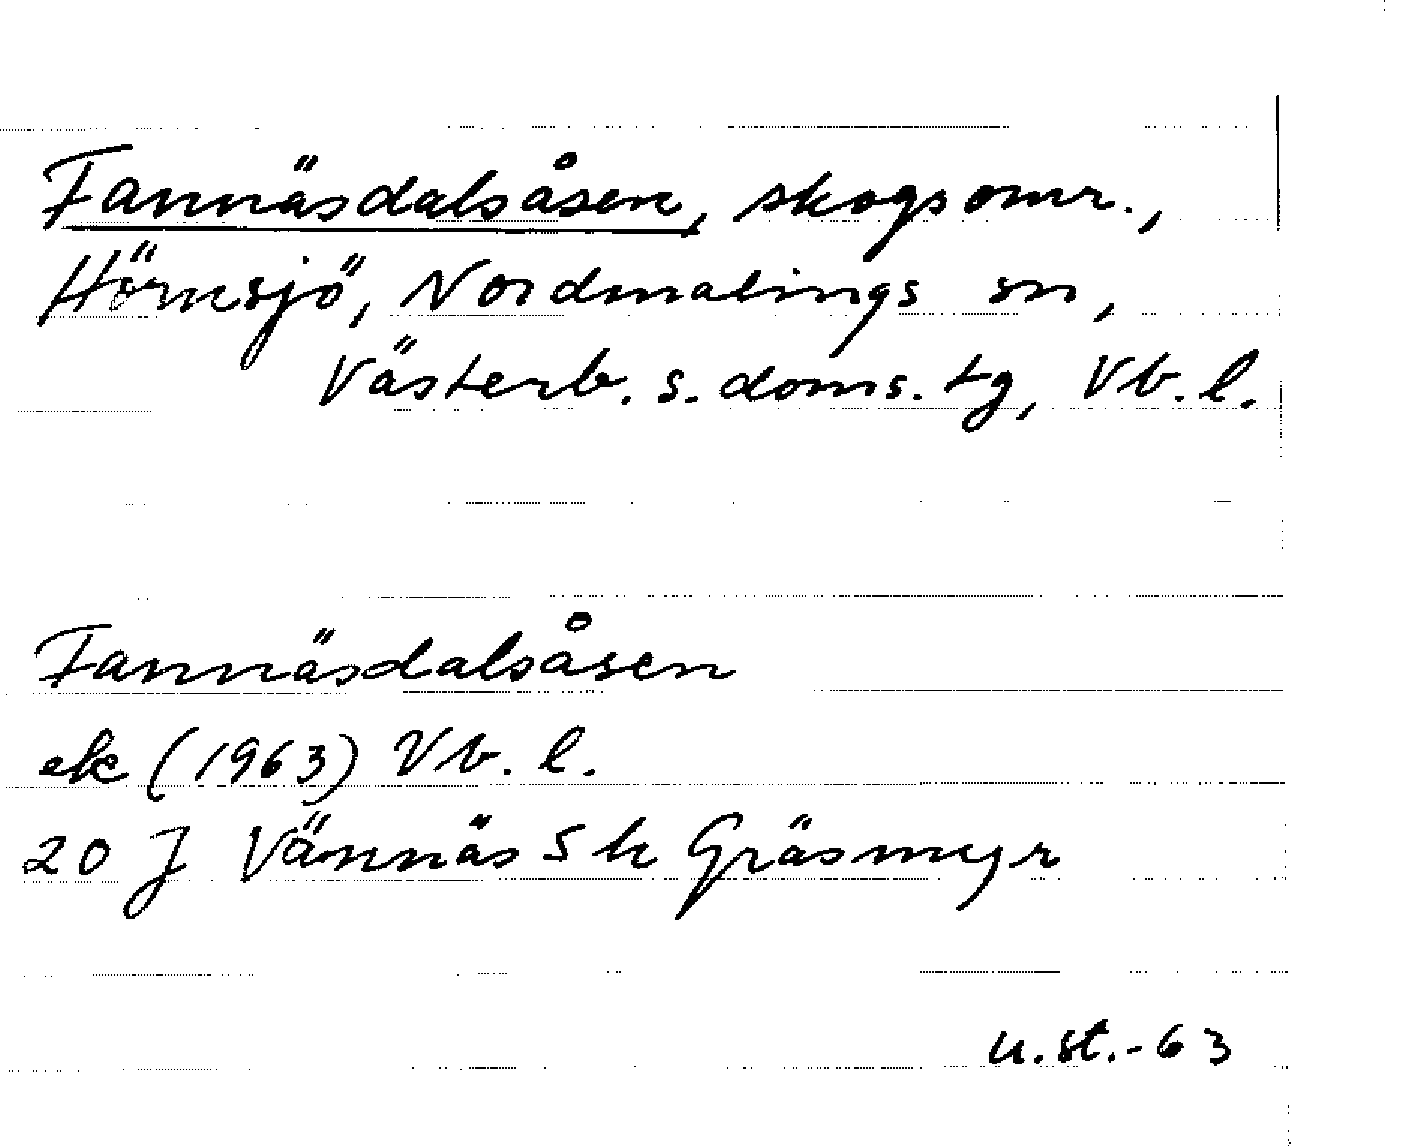 Fannäsdalsåsen, skogsomr.,
Hörnsjö, Nordmalings sn,
Västerb. s. doms. tg, Vb. l.
Fannäsdalsåsen
ek (1963) Vb. l.
20 J Vännäs S k Gräsmyr
u.st.-63